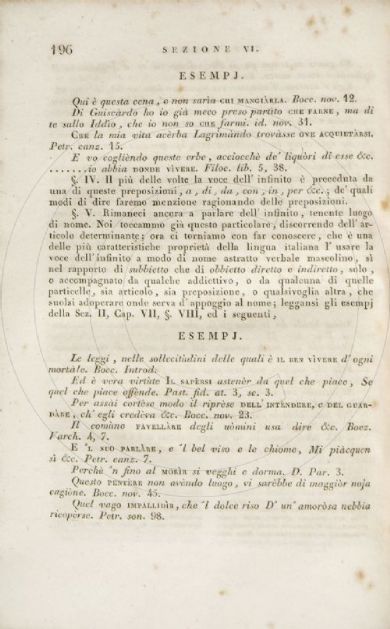 196 SEZIONE VI.
ESEMPJ.
Qui è questa cena, e non saria CHI MANGIÀRLA. Bocc. nov. 12.
Di Guiscàrdo ho io già meco preso partito CHE FARNE, ma di
te sallo Iddio, che io non so CHE farmi. id. nov. 31.
CHE la mia vita acèrba Lagrimàndo trovàsse ONE ACQUIETÀRSI.
Petr. canz. 15.
E vo coglièndo queste erbe, acciocchè de' liquòri di esse &c.
.......io abbia DONDE VÌVERE. Filoc. lib. 5, 38.
§. IV. Il più delle volte la voce dell' infinito è preceduta da
una di queste preposizioni, a, di, da, con, in, per &c.; de' quali
modi di dire faremo menzione ragionando delle preposizioni.
§. V. Rimaneci ancora a parlare dell' infinito, tenente luogo
di nome. Noi toccammo già questo particolare, discorrendo dell' ar-
ticolo determinante; ora ci torniamo con far conoscere, che è una
delle più caratteristiche proprietà della lingua italiana l' usare la
voce dell' infinito a modo di nome astratto verbale mascolino, sì
nel rapporto di subbietto che di obbietto diretto e indiretto, solo,
o accompagnato da qualche addiettivo, o da qualcuna di quelle
particelle, sia articolo, sia preposizione, o qualsivoglia altra, che
suolsi adoperare onde serva d' appoggio al nome; leggansi gli esempj
della Sez. II, Cap. VII, §. VIII, ed i seguenti,
ESEMPJ.
Le leggi, nelle sollecitùdini delle quali è IL BEN VÌVERE d' ogni
mortàle. Bocc. Introd.
Ed è vera virtùte IL SAPÈRSI astenèr da quel che piace, Se
quel che piace offènde. Past. fid. at. 3, sc. 3.
Per assai cortèse modo il riprèse DELL' INTÈNDERE, E DEL GUAR-
DÀRE, ch' egli credèva &c. Bocc. nov. 23.
Il comùne FAVELLÀRE degli uòmini usa dire &c. Boez.
Varch. 4, 7.
E 'L SUO PARLÀRE, e 'l bel viso e le chiome, Mi piàcquen
sì &c. Petr. canz. 7.
Perchè 'n fino al MORÌR si vegghi e dorma. D. Par. 3.
Questo PÈNTERE non avèndo luogo, vi sarèbbe di maggiòr noja
cagiòne. Bocc. nov. 45.
Quel vago IMPALLIDÌR, che 'l dolce riso D' un' amoròsa nebbia
ricopèrse. Petr. son. 98.